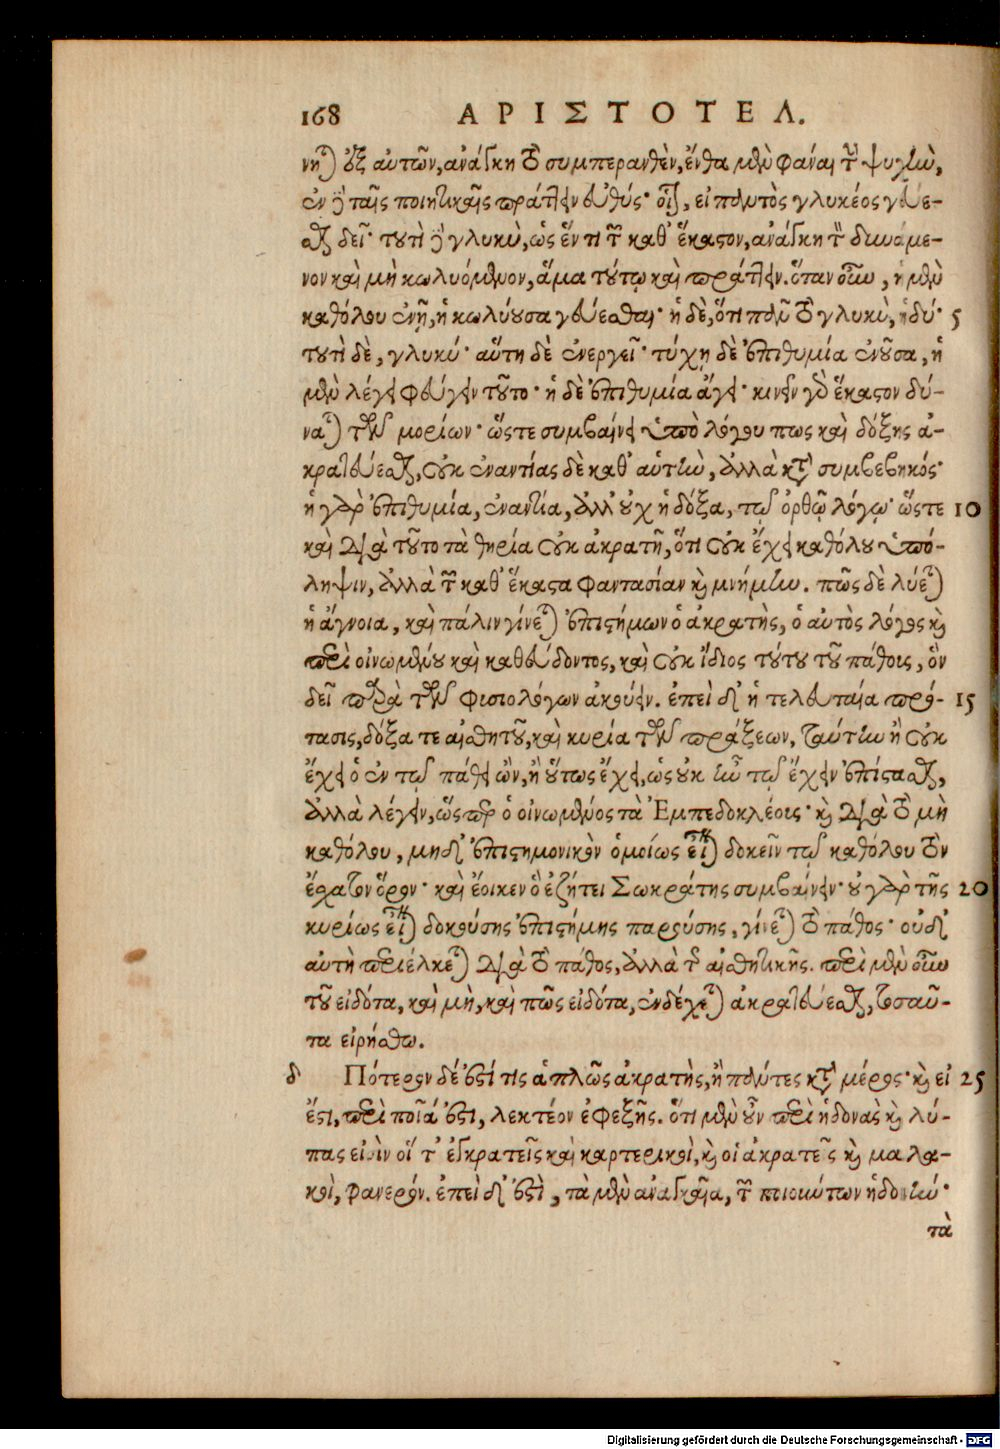 168 ΑΡΙΣΤΟΤΕΛ.
νηται ἐξ αὐτῶν, ἀνάγκη τὸ συμπερανθὲν, ἔνθα μὲν φάναι τὴν ψυχὴν,
ἐν δὲ ταῖς ποιητικαῖς πράττειν εὐθύς· οἷον, εἰ παντὸς γλυκέος γεύε-
σθαι δεῖ· τουτὶ δὲ γλυκὺ, ὡς ἕν τι τῶν καθ' ἕκαστον, ἀνάγκη τὸν δυνάμε-
νον καὶ μὴ κωλυόμενον, ἅμα τούτῳ καὶ πράττειν. ὅταν οὖν, ἡ μὲν
καθόλου ἐνῇ, ἡ κωλύουσα γεύεσθαι· ἡ δὲ, ὅτι πᾶν τὸ γλυκὺ, ἡδύ· 5
τουτὶ δὲ, γλυκύ· αὕτη δὲ ἐνεργεῖ· τύχῃ δὲ ἐπιθυμία ἐνοῦσα, ἡ
μὲν λέγει φεύγειν τοῦτο· ἡ δὲ ἐπιθυμία ἄγει· κινεῖν γὰρ ἕκαστον δύ-
ναται τῶν μορίων· ὥστε συμβαίνει ὑπὸ λόγου πως καὶ δόξης ἀ-
κρατεύεσθαι, οὐκ ἐναντίας δὲ καθ' αὑτὴν, ἀλλὰ κατὰ συμβεβηκός·
ἡ γὰρ ἐπιθυμία, ἐναντία, ἀλλ' οὐχ ἡ δόξα, τῷ ὀρθῷ λόγῳ· ὥστε 10
καὶ διὰ τοῦτο τὰ θηρία οὐκ ἀκρατῆ, ὅτι οὐκ ἔχει καθόλου ὑπό-
ληψιν, ἀλλὰ τῶν καθ' ἕκαστα φαντασίαν καὶ μνήμην. πῶς δὲ λύεται
ἡ ἄγνοια, καὶ πάλιν γίνεται ἐπιστήμων ὁ ἀκρατὴς, ὁ αὐτὸς λόγος καὶ
περὶ οἰνωμένου καὶ καθεύδοντος, καὶ οὐκ ἴδιος τούτου τοῦ πάθους, ὃν
δεῖ παρὰ τῶν φυσιολόγων ἀκούειν. ἐπεὶ δ' ἡ τελευταία πρό- 15
τασις, δόξα τε αἰσθητοῦ, καὶ κυρία τῶν πράξεων, ταύτην ἢ οὐκ
ἔχει ὁ ἐν τῷ πάθει ὢν, ἢ οὕτως ἔχει, ὡς οὐκ ἦν τῷ ἔχειν ἐπίστασθαι,
ἀλλὰ λέγειν, ὥσπερ ὁ οἰνωμένος τὰ Ἐμπεδοκλέους· καὶ διὰ τὸ μὴ
καθόλου, μηδ' ἐπιστημονικὸν ὁμοίως εἶναι δοκεῖν τῷ καθόλου τὸν
ἔσχατον ὅρον· καὶ ἔοικεν ὃ ἐζήτει Σωκράτης συμβαίνειν· οὐ γὰρ τῆς 20
κυρίως εἶναι δοκούσης ἐπιστήμης παρούσης, γίνεται τὸ πάθος· οὐδ'
αὐτὴ περιέλκεται διὰ τὸ πάθος, ἀλλὰ τῆς αἰσθητικῆς. περὶ μὲν οὖν
τοῦ εἰδότα, καὶ μὴ, καὶ πῶς εἰδότα, ἐνδέχεται ἀκρατεύεσθαι, τοσαῦ-
τα εἰρήσθω.
δ Πότερον δέ ἐστί τις ἁπλῶς ἀκρατὴς, ἢ πάντες κατὰ μέρος· καὶ εἰ 25
ἔστι, περὶ ποῖά ἐστι, λεκτέον ἐφεξῆς. ὅτι μὲν οὖν περὶ ἡδονὰς καὶ λύ-
πας εἰσὶν οἵ τ' ἐγκρατεῖς καὶ καρτερικοὶ, καὶ οἱ ἀκρατεῖς καὶ μαλα-
κοὶ, φανερόν. ἐπεὶ δ' ἐστὶ, τὰ μὲν ἀναγκαῖα, τῶν ποιούντων ἡδονήν·
τὰ
Digitalisierung gefördert durch die Deutsche Forschungsgemeinschaft - DFG